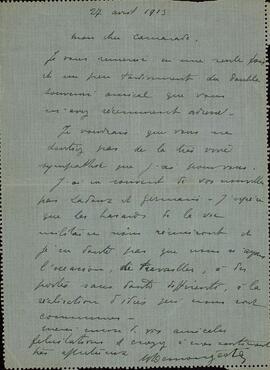 27 avril 1913
mon cher camarade.
Je vous remercie en une seule fois
et un peu tardivement du double
souvenir amical que vous
m'avez récemment adressé.
Je voudrais que vous ne
doutiez pas de la très vive
sympathie que j'ai pour vous.
J'ai eu souvent de vos nouvelles
par et Germain. J'espère
que les hasards de la vie
militaire nous réuniront et
je ne doute pas que nous n'ayons
l'occasion, de travailler, à des
postes sans doute différents, à la
réalisation d'idées qui nous sont
communes
merci encore de vos amicales
félicitations et croyez à mes sentiments
très affectueux